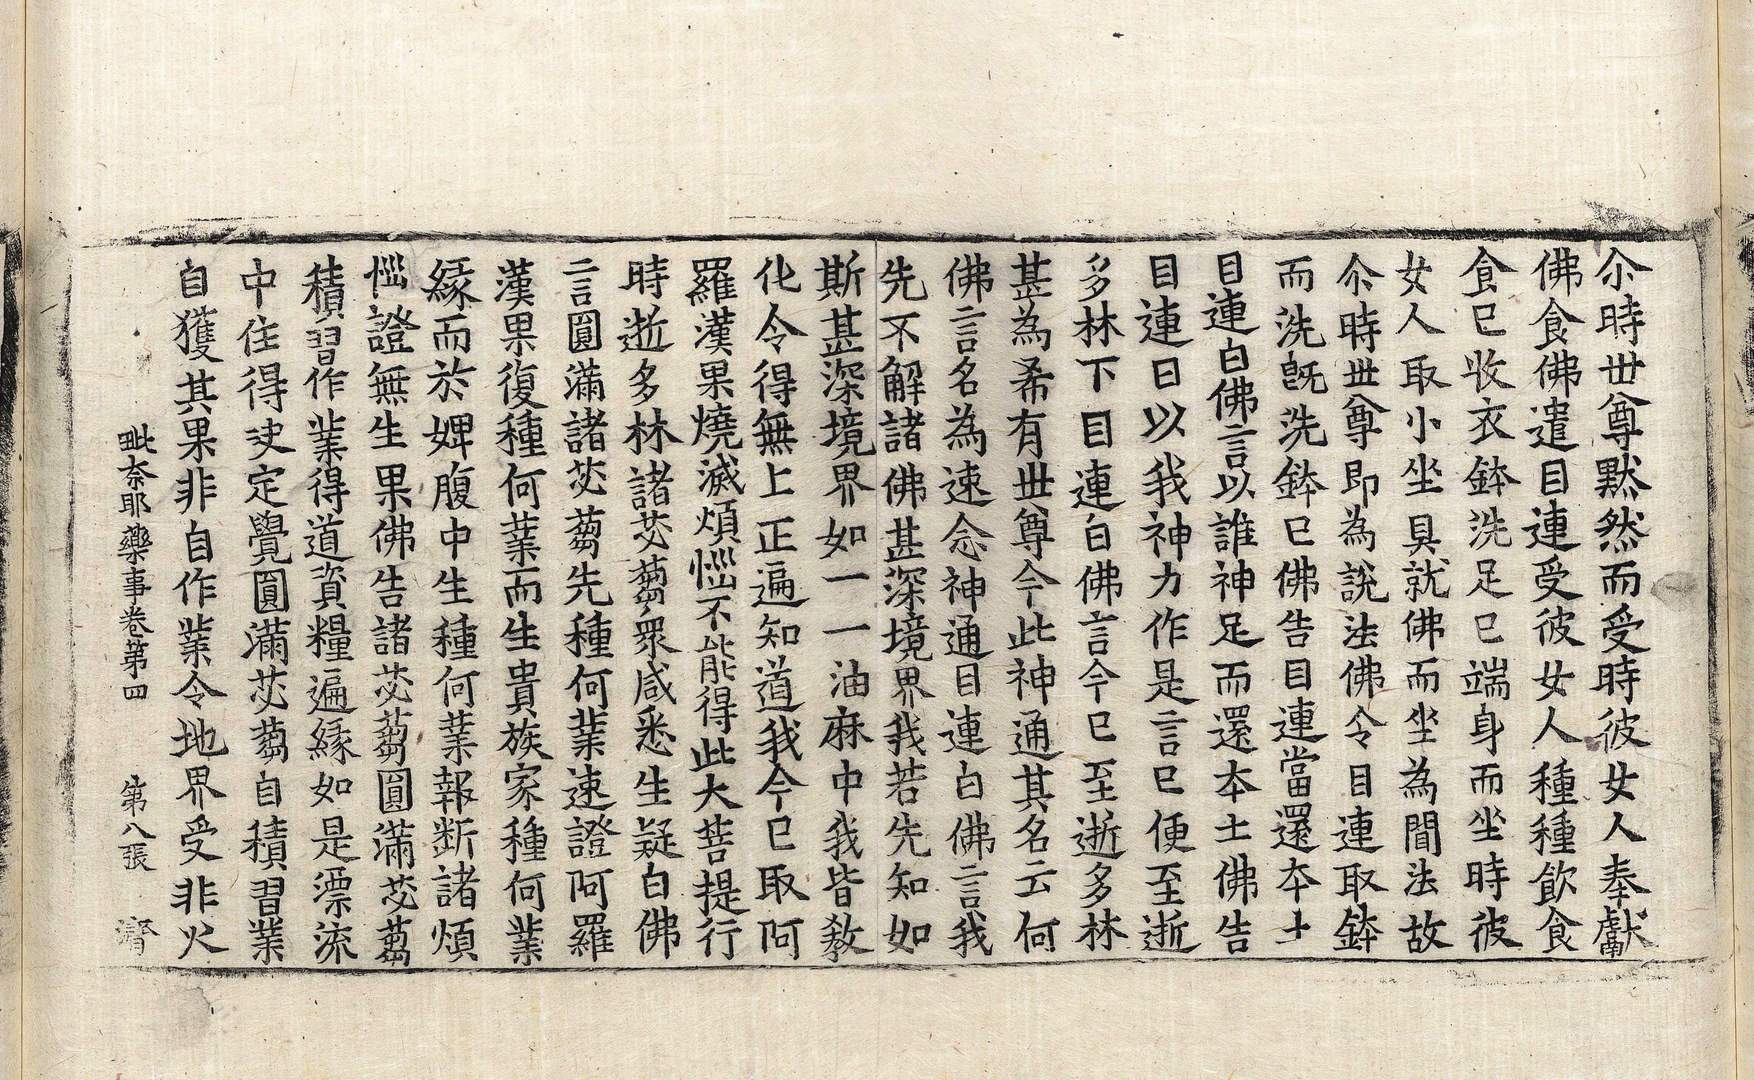 尒時世尊默然而受時彼女人奉獻
佛食佛遣目連受彼女人種種飲食
食已收衣鉢洗足已端身而坐時彼
女人取小坐具就佛而坐為聞法故
尒時世尊即為說法佛令目連取鉢
而洗旣洗鉢已佛告目連當還本土
目連白佛言以誰神足而還本土佛告
目連曰以我神力作是言已便至逝
多林下目連白佛言今已至逝多林
甚為希有世尊今此神通其名云何
佛言名為速念神通目連白佛言我
先不解諸佛甚深境界我若先知如
斯甚深境界如一一油麻中我皆教
化令得無上正遍知道我今已取阿
羅漢果燒滅煩惱不能得此大菩提行
時逝多林諸苾蒭眾咸悉生疑白佛
言圓滿諸苾蒭先種何業速證阿羅
漢果復種何業而生貴族家種何業
緣而於婢腹中生種何業報斷諸煩
惱證無生果佛告諸苾蒭圓滿苾蒭
積習作業得道資糧遍緣如是漂流
中住得決定覺圓滿苾蒭自積習業
自獲其果非自作業令地界受非火
毗奈耶藥事卷第四 第八張 濟